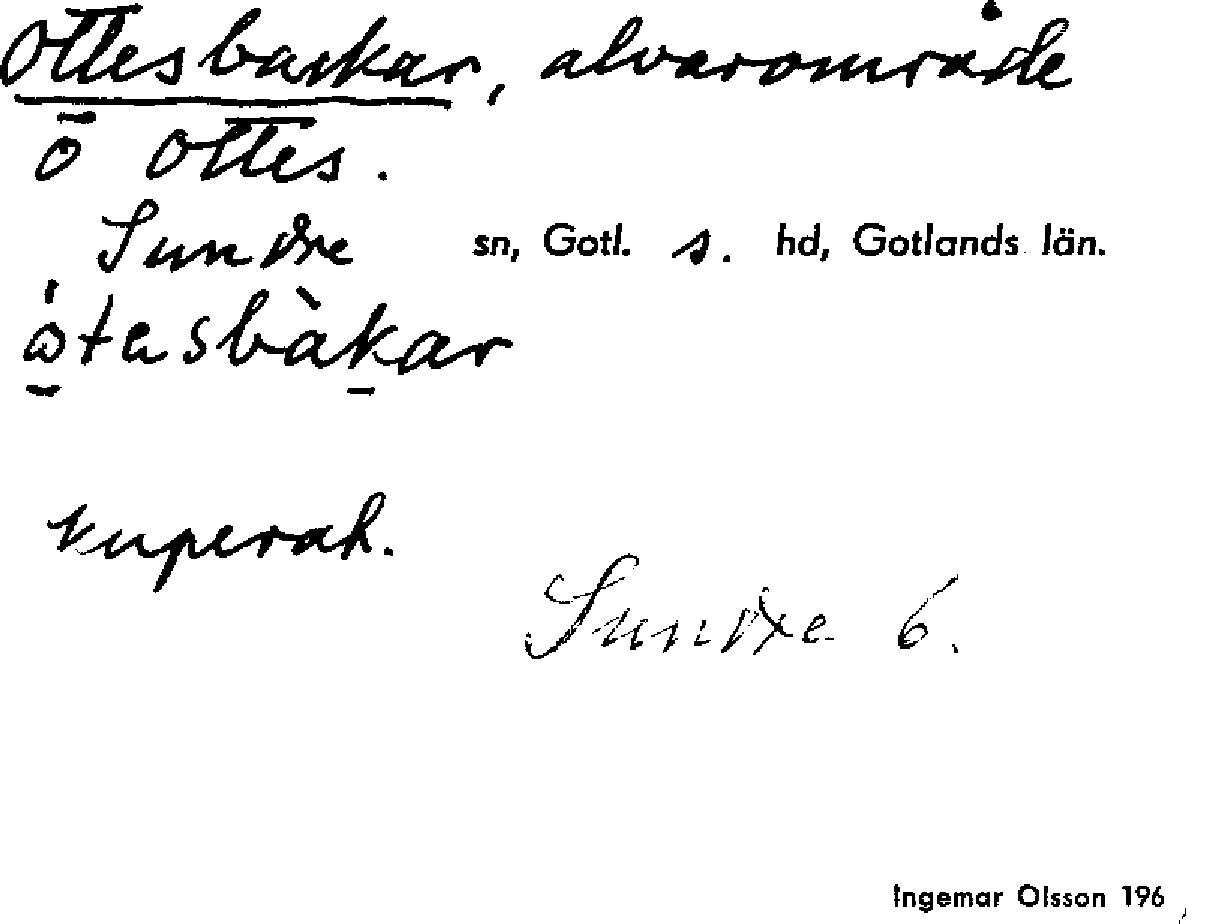 Ottesbackar, alvarområde
ō Ottes.
Sundre sn, Gotl. s. hd, Gotlands län.
kuperat.
Sundre 6.
Ingemar Olsson 196